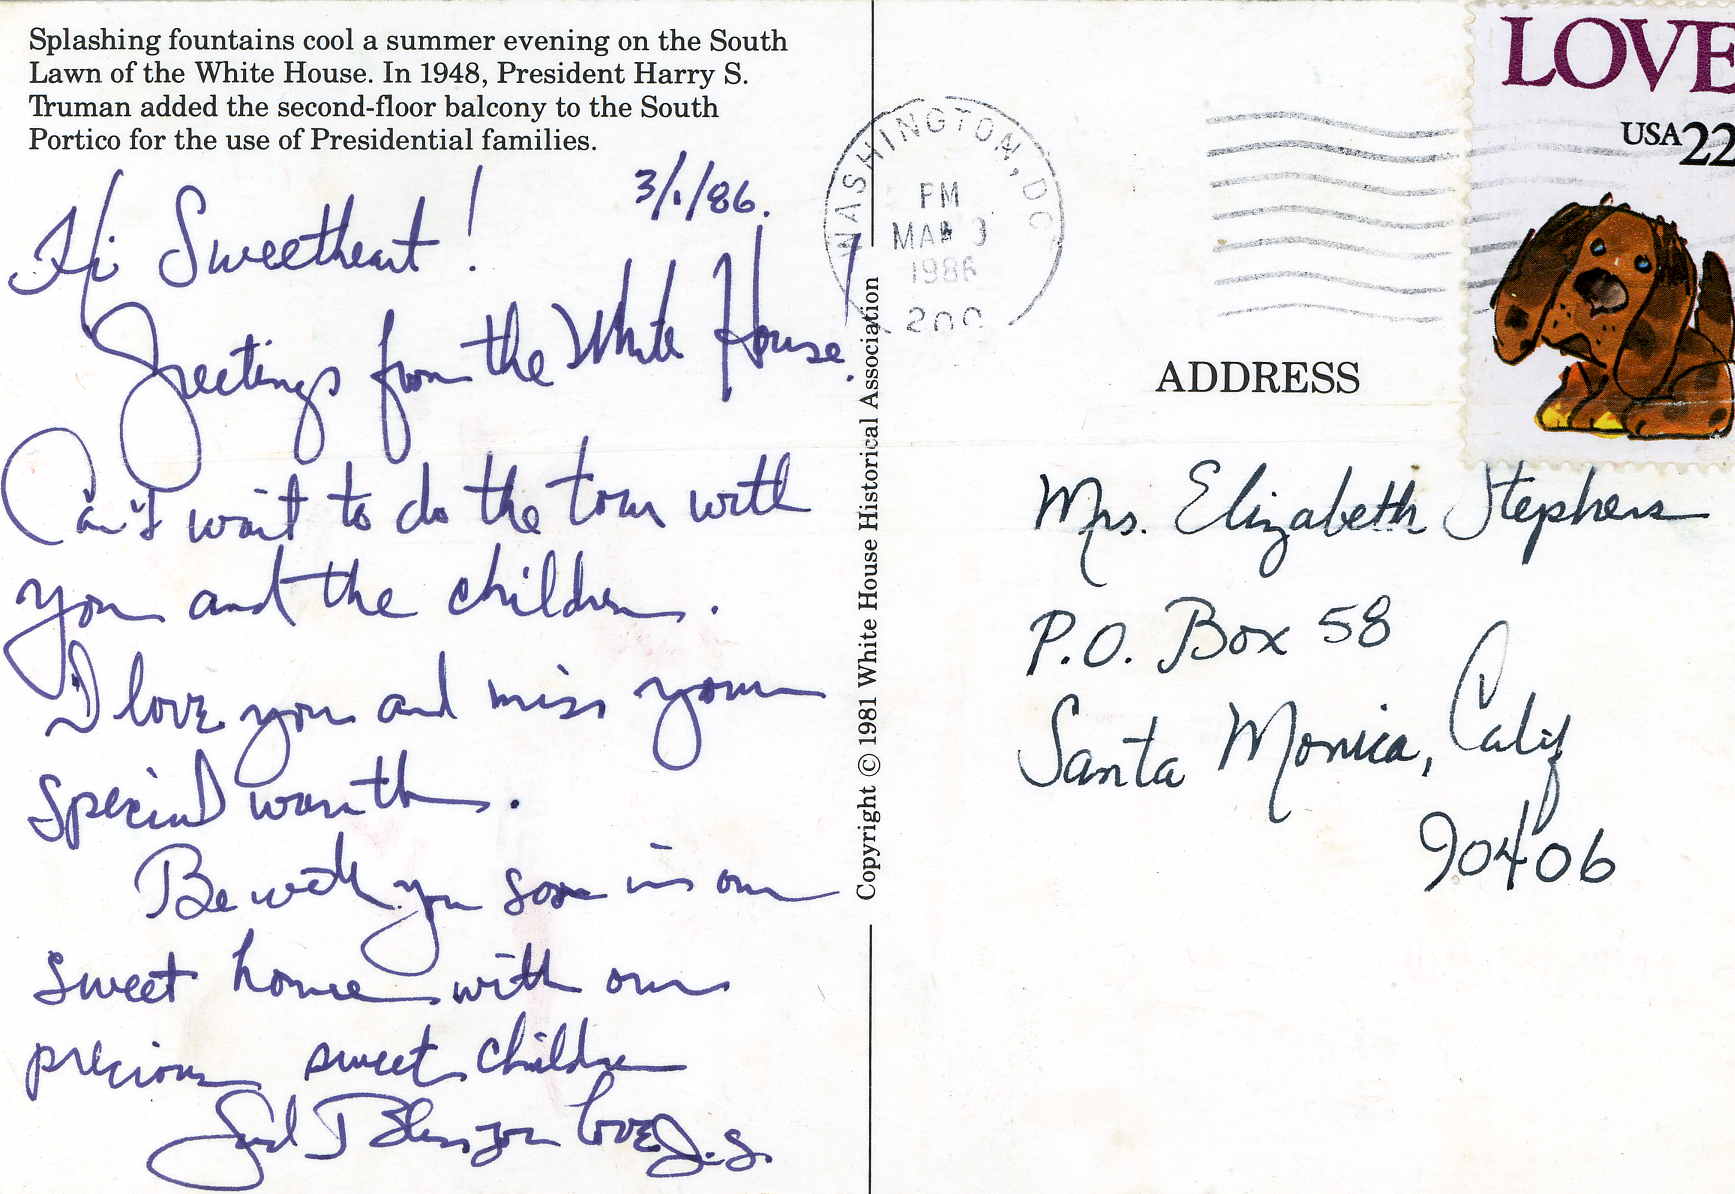 Splashing fountains cool a summer evening on the South
Lawn of the White House. In 1948, President Harry S.
Truman added the second-floor balcony to the South
Portico for the use of Presidential families.
3/1/86.
Hi Sweetheart!
Greetings from the White House!
Can't wait to do the tour with
you and the children.
I love you and miss your
special warmth.
Be with you soon in our
sweet home with our
precious sweet children
God Bless you Love J.S.
Copyright © 1981 White House Historical Association
WASHINGTON, DC
PM
MAR 3
1986
200
LOVE
USA 22
ADDRESS
Mrs. Elizabeth Stephens
P.O. Box 58
Santa Monica, Calif
90406